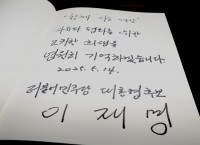 "함께 사는 세상"
자유와 평화를 위한
고귀한 희생을
영원히 기억하겠습니다
2025. 5. 14.
더불어민주당 대통령후보
이 재 명